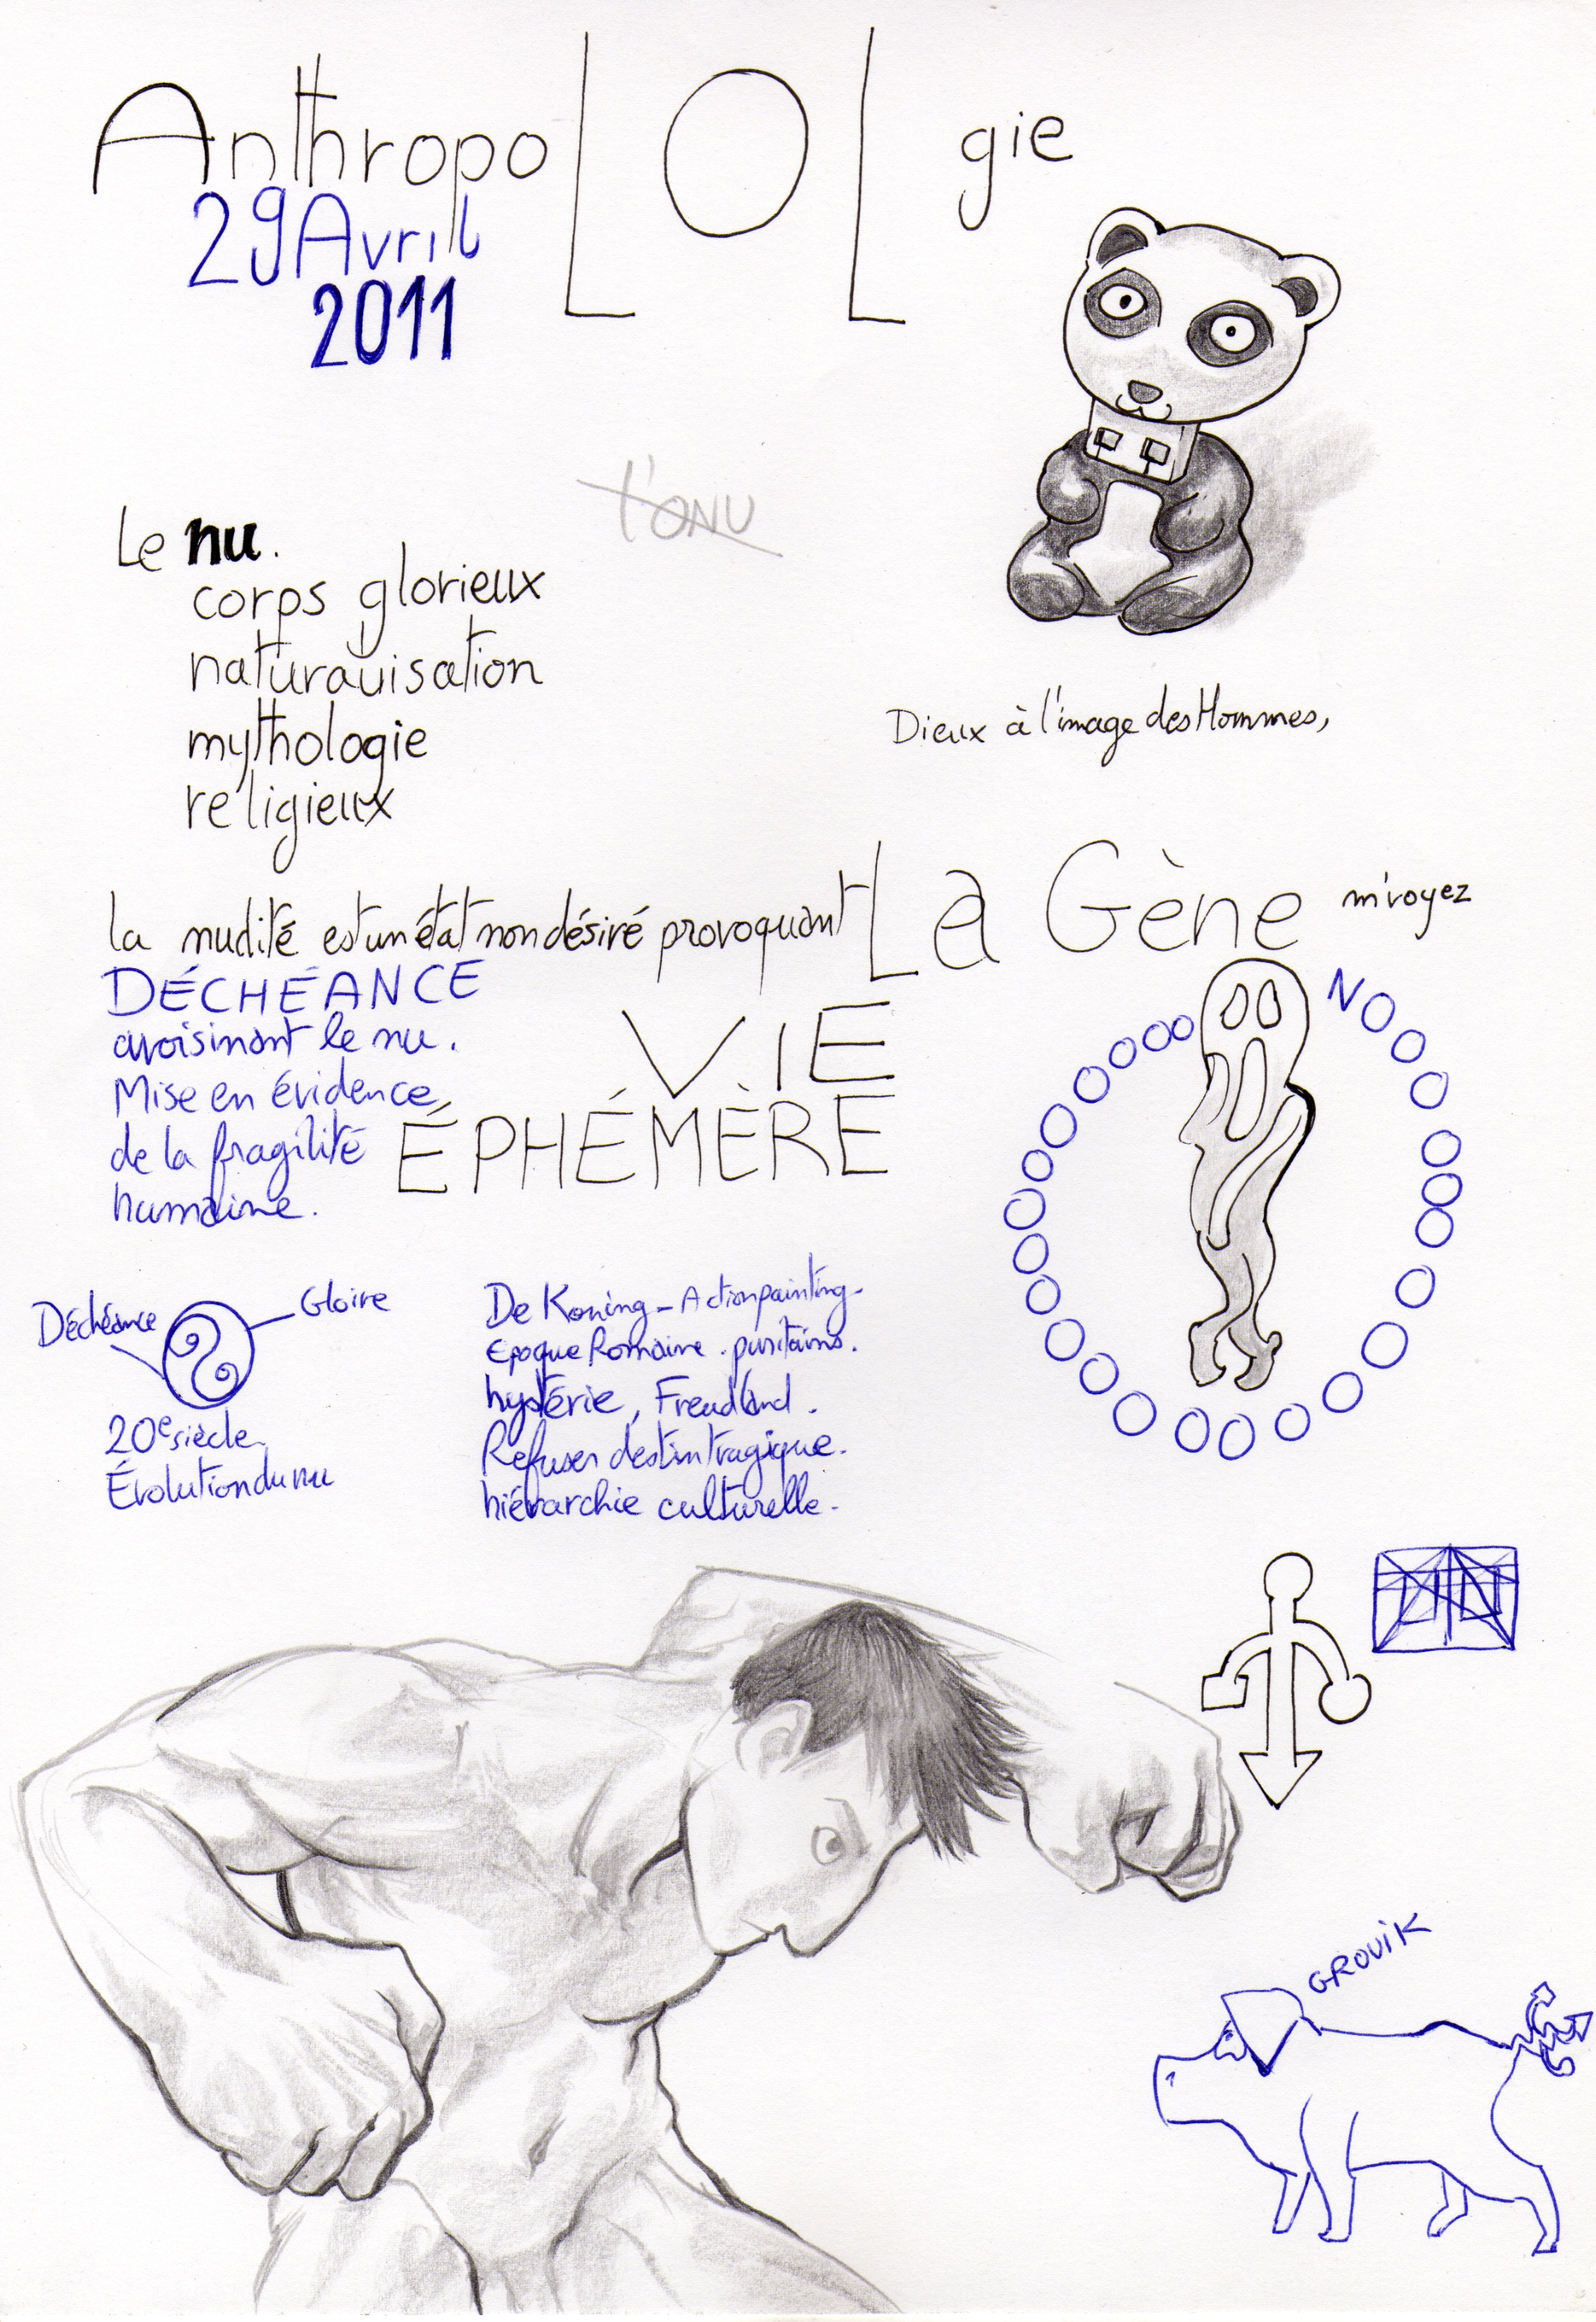 AnthropoLOLgie
29 Avril
2011
l'ONU
Le nu.
corps glorieux
naturauisation
mythologie
religieux
Dieux à l'image des Hommes,
la nudité est un état non désiré provoquant La Gène m'voyez
DÉCHÉANCE
avoisinant le nu.
Mise en évidence
de la fragilité
humaine.
VIE
ÉPHÉMÈRE
NOOOOOOOOOOOOOOOOOOOOOOOOOOO
Déchéance
Gloire
20e siècle
Évolution du nu
De Koning - Action painting -
Epoque Romaine . puritains .
hystérie, Freudland .
Refuser destin tragique.
hiérarchie culturelle -
GROUIK